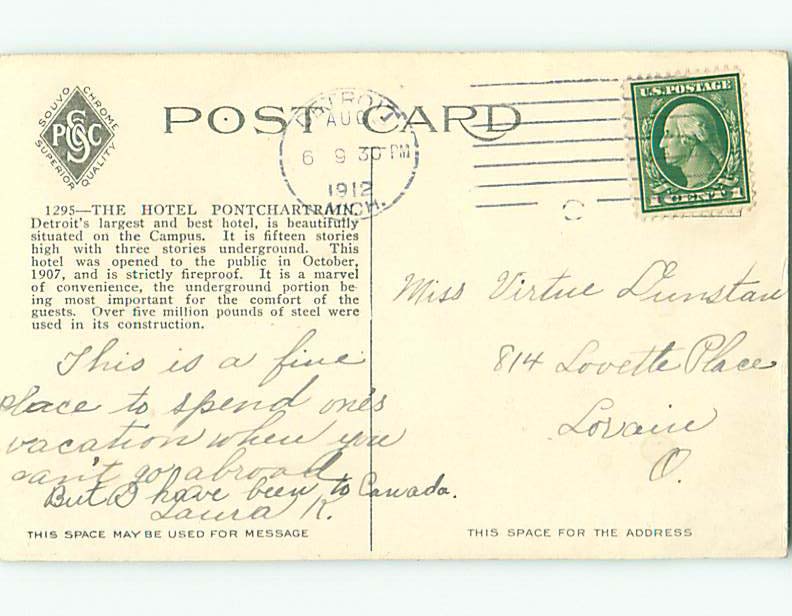 SOUVO CHROME
PSCC
SUPERIOR QUALITY
POST CARD
DETROIT
AUG
6 9 30 PM
1912
MICH.
U.S. POSTAGE
1 CENT 1
1295—THE HOTEL PONTCHARTRAIN,
Detroit's largest and best hotel, is beautifully
situated on the Campus. It is fifteen stories
high with three stories underground. This
hotel was opened to the public in October,
1907, and is strictly fireproof. It is a marvel
of convenience, the underground portion be-
ing most important for the comfort of the
guests. Over five million pounds of steel were
used in its construction.
This is a fine
place to spend one's
vacation when you
can't go abroad
But I have been to Canada.
Laura K.
Miss Virtue Dunstan
814 Lovette Place
Lorain
O.
THIS SPACE MAY BE USED FOR MESSAGE
THIS SPACE FOR THE ADDRESS